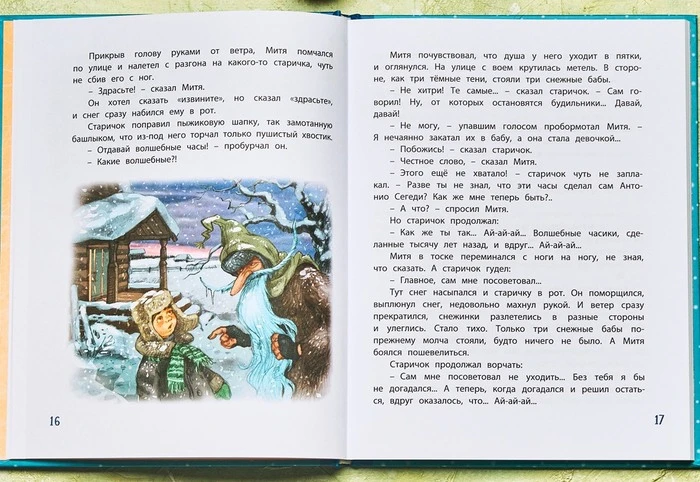 Прикрыв голову руками от ветра, Митя помчался
по улице и налетел с разгона на какого-то старичка, чуть
не сбив его с ног.
– Здрасьте! – сказал Митя.
Он хотел сказать «извините», но сказал «здрасьте»,
и снег сразу набился ему в рот.
Старичок поправил пыжиковую шапку, так замотанную
башлыком, что из-под него торчал только пушистый хвостик.
– Отдавай волшебные часы! – пробурчал он.
– Какие волшебные?!
16
Митя почувствовал, что душа у него уходит в пятки,
и оглянулся. На улице с воем крутилась метель. В сторо-
не, как три тёмные тени, стояли три снежные бабы.
– Не хитри! Те самые... – сказал старичок. – Сам го-
ворил! Ну, от которых остановятся будильники... Давай,
давай!
– Не могу, – упавшим голосом пробормотал Митя. –
Я нечаянно закатал их в бабу, а она стала девочкой...
– Побожись! – сказал старичок.
– Честное слово, – сказал Митя.
– Этого ещё не хватало! – старичок чуть не запла-
кал. – Разве ты не знал, что эти часы сделал сам Анто-
нио Сегеди? Как же мне теперь быть?..
– А что? – спросил Митя.
Но старичок продолжал:
– Как же ты так... Ай-ай-ай... Волшебные часики, сде-
ланные тысячу лет назад, и вдруг... Ай-ай-ай...
Митя в тоске переминался с ноги на ногу, не зная,
что сказать. А старичок гудел:
– Главное, сам мне посоветовал...
Тут снег насыпался и старичку в рот. Он поморщился,
выплюнул снег, недовольно махнул рукой. И ветер сразу
прекратился, снежинки разлетелись в разные стороны
и улеглись. Стало тихо. Только три снежные бабы по-
прежнему молча стояли, будто ничего не было. А Митя
боялся пошевелиться.
Старичок продолжал ворчать:
– Сам мне посоветовал не уходить... Без тебя я бы
не догадался... А теперь, когда догадался и решил остать-
ся, вдруг оказалось, что... Ай-ай-ай...
17